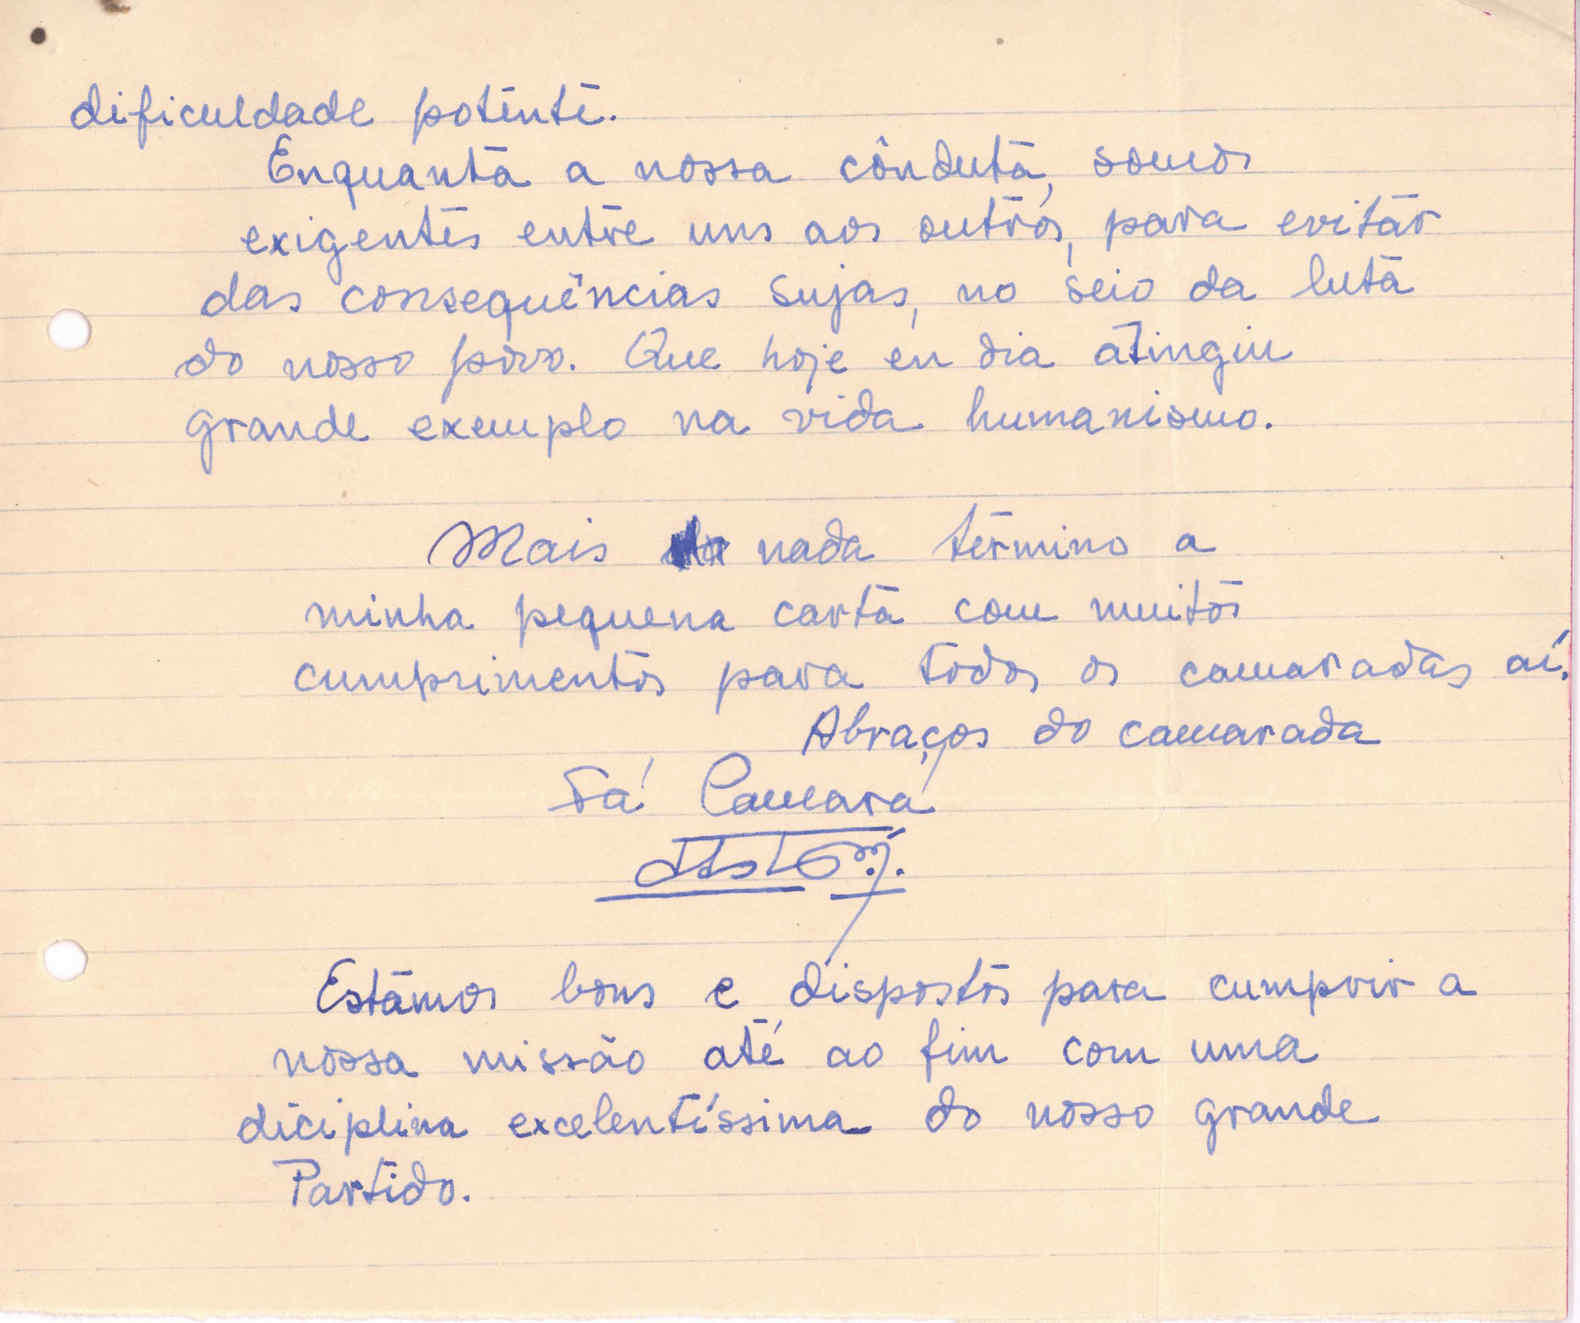 dificuldade potente.
Enquanta a nossa cônduta, somos
exigentes entre uns aos outros, para evitar
das consequências sujas, no seio da luta
do nosso povo. Que hoje en dia atingiu
grande exemplo na vida humanismo.
Mais nada termino a
minha pequena carta com muitos
cumprimentos para todos os camaradas aí.
Abraços do camarada
Fá Camará
Estamos bons e dispostos para cumprir a
nossa missão até ao fim com uma
diciplina excelentíssima do nosso grande
Partido.